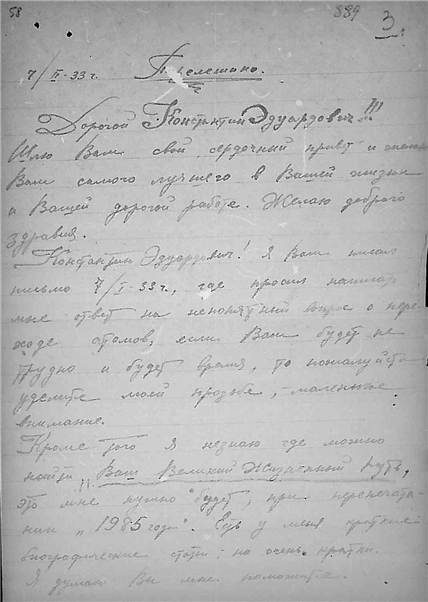 58
889
3
7/II-33 г.
Дорогой Константин Эдуардович!!!
Шлю Вам свой сердечный привет и
Вам самого лучшего в Вашей жизни
и Вашей дорогой работе. Желаю доброго
здравия.
Константин Эдуардович! Я Вам писал
письмо 7/I-33 г., где просил написать
мне ответ на непонятный вопрос о пере-
ходе атомов, если Вам будет не
трудно и будет время, то пожалуйста
уделите моей прозьбе, - маленькое
внимание.
Кроме того я незнаю где можно
найти "Ваш Великий Жизненный путь,
это мне нужно будет, при перепечата-
нии "1985 года". Есть у меня краткие
биографические статьи: но очень кратки.
Я думаю Вы мне поможете.